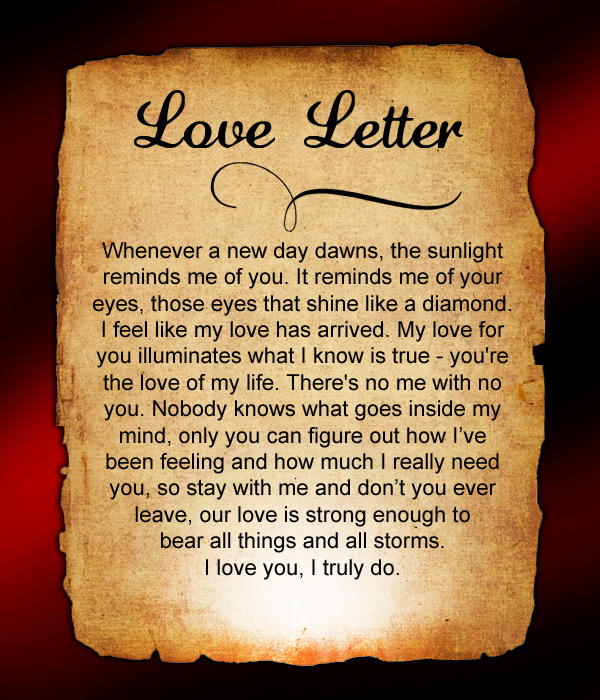 Love Letter
Whenever a new day dawns, the sunlight
reminds me of you. It reminds me of your
eyes, those eyes that shine like a diamond.
I feel like my love has arrived. My love for
you illuminates what I know is true - you're
the love of my life. There's no me with no
you. Nobody knows what goes inside my
mind, only you can figure out how I’ve
been feeling and how much I really need
you, so stay with me and don’t you ever
leave, our love is strong enough to
bear all things and all storms.
I love you, I truly do.